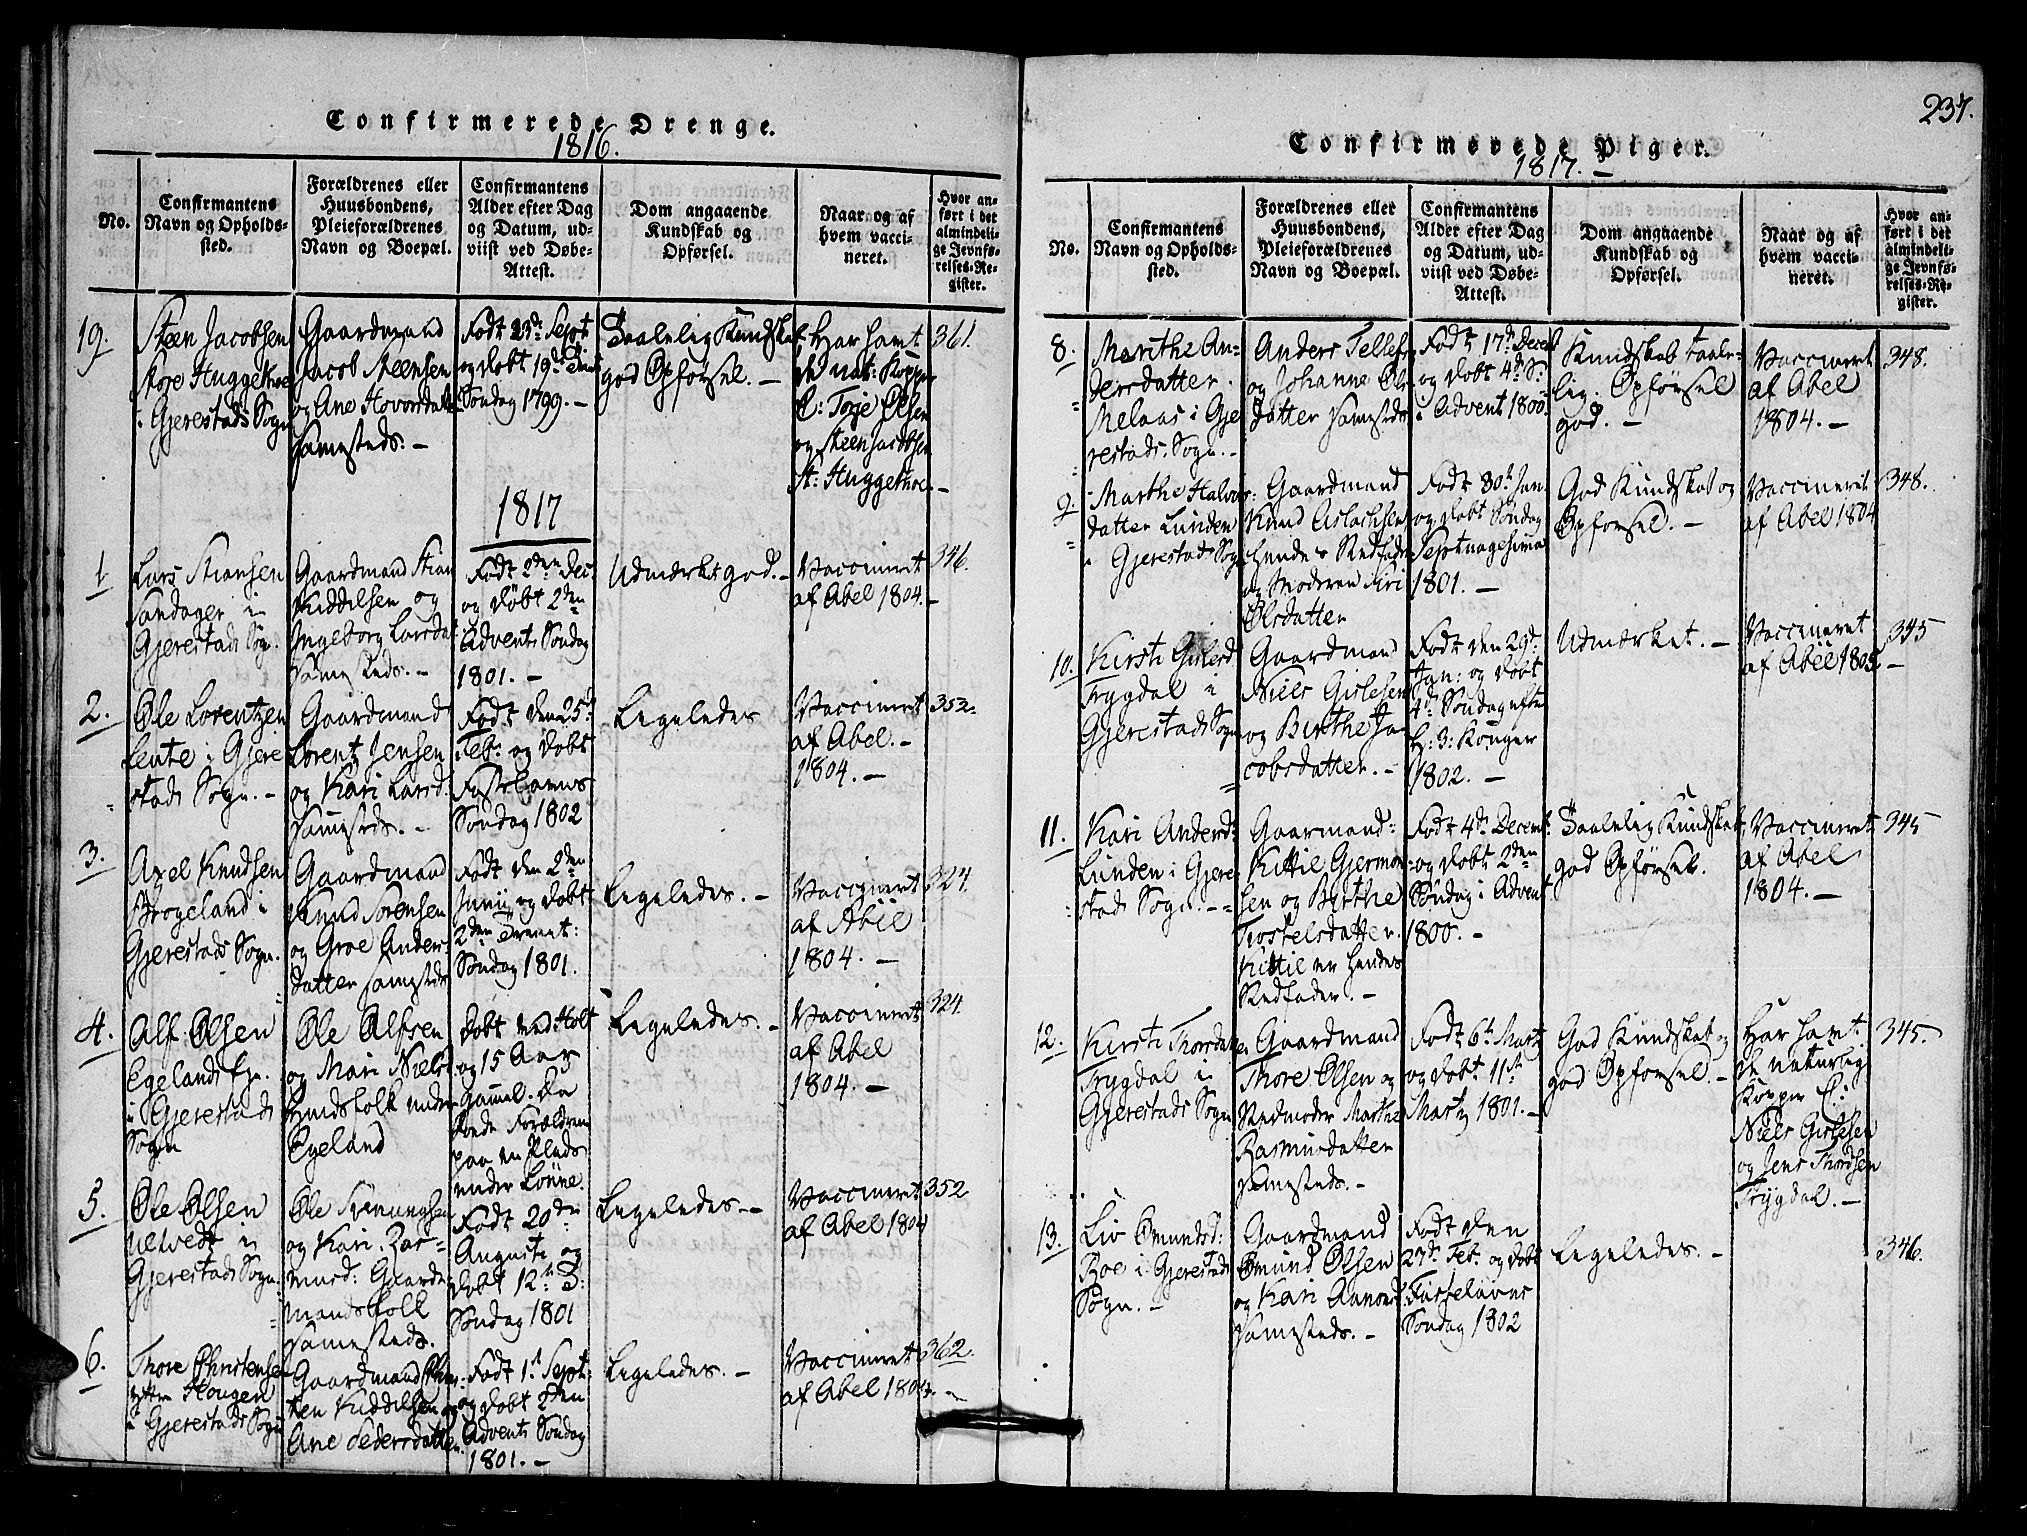 Confirmerede Drenge.
1816.
No.
Confirmantens
Navn og Opholds-
sted.
Forældrenes eller
Huusbondens,
Pleieforældrenes
Navn og Boepæl.
Confirmantens
Alder efter Dag
og Datum, ud-
viist ved Døbe-
Attest.
Dom angaaende
Kundskab og
Opførsel.
Naar og af
hvem vacci-
neret.
Hvor an-
ført i det
almindeli-
ge Jevnfø-
relses-Re-
gister.
19.
Steen Jacobsen
Store Huggethoe
i Gjerestads Sogn
Gaardmand
Jacob Steensen
og Ane Hovorsdatter
samesteds. -
Født 23de Sept
og døbt 19de Trinit
Søndag 1799. -
Taalelig Kundskab
god Opførsel. -
Har havt
de nat: Kopper
E: Torje Olsen
og Steen Jacobsen
St: Huggethoe. -
361.
1817
1
Lars Stiansen
Sandager in
Gjerestads Sogn.
Gaardmand Stian
Kiddilsen og
Ingeborg Larsdat:
samesteds. -
Født 2den Dec.
og døbt 2den
Advents Søndag
1801. -
Udmærket god. -
Vaccineret
af Abel 1804. -
346.
2.
Ole Lorentzen
Lente i Gjere
stads Sogn. -
Gaardmand
Lorentz Jensen
og Kari Larsd.
samesteds. -
Født den 25d
Feb: og døbt
Fastelavns
Søndag 1802
Ligeledes
Vaccineret
af Abel. -
1804. -
352.
3.
Axel Knudsen
Brogeland i
Gjerestads Sogn.
Gaardmand
Knud Sørensen
og Groe Anders
datter samesteds
Født den 2den
Junii og døbt
2den Trinit:
Søndag 1801.
Ligeledes. -
Vaccineret
af Abel
1804. -
324.
4.
Alf Olsen
Egelands Eje.
i Gjerestads
Sogn
Ole Alfsen
og Mari Niels
Huusfolk under
Egeland
Døbt ved Holt
og 15 Aar
gammel. Da
boede Forældrene
paa en Plads
under Lønne.
Ligeledes. -
Vaccineret
af Abel
1804. -
324.
5.
Ole Olsen
Ulvedt in
Gjerestads Sogn.
Ole Svenungsen
og Kari Ras-
musd: Gaard-
mandsfolk
samesteds.
Født 20de
Augusti og
døbt 12te T:
Søndag 1801
Ligeledes. -
Vaccineret
af Abel 1804
352
6.
Thore Christensen
Haugen
i Gjerestads Sogn
Gaardmand Chris-
ten Kiddilsen og
Ane Pedersdatter.
Født 1st Sept:
og døbt 2den
Advents Søndag
1801. -
Ligeledes. -
Vaccineret
af Abel 1804. -
362.
237.
Confirmerede Piger.
1817. -
No.
Confirmantens
Navn og Opholds-
sted.
Forældrenes eller
Huusbondens,
Pleieforældrenes
Navn og Boepæl.
Confirmantens
Alder efter Dag
og Datum, ud-
viist ved Døbe-
Attest.
Dom angaaende
Kundskab og
Opførsel.
Naar og af
hvem vacci-
neret.
Hvor an-
ført i det
almindeli-
ge Jevnfø-
relses-Re-
gister.
8.
Marithe An-
dersdatter
Melaas i Gje
restads. Sogn. -
Anders Tellefs
og Johanne Ols
datter samesteds
Født 17de Decemb
og døbt 4de S:
i Advent 1800.
Kundskab taale-
lig. Opførsel
god. -
Vaccineret
af Abel
1804. -
348.
9.
Marthe Halvors:
datter Lunden
i Gjerestads Sogn
Gaardmand
Knud Aslachsen
hendes Stedfader
og Moderen Siri
Olsdatter
Født 30te Jan.
og døbt Søndag
Septuagesima
1801. -
God Kundskab og
Opførsel. -
Vaccineret
af Abel 1804
348.
10.
Kirsti Gislesd
Trygdal i
Gjerestads Sogn
Gaardmand
Niels Gislesen
og Birthe Ja
cobsdatter. -
Født den 29d
Jan: og døbt
4de Søndag efter
H: 3: Konger
1802. -
Udmærket. -
Vaccineret
af Abel 1805. -
345
11.
Kari Andersd:
Lunden i Gjere
stads Sogn. -
Gaarmand:
Kittil Gjermon
sen og Birthe
Trostelsdatter.
Kittil er hendes
Stedfader. -
Født 4de Decemb:
og døbt 2den
Søndag i Advent
1800. -
Taalelig Kundskab,
god Opførsel.
Vaccineret
af Abel
1804. -
345
12.
Kirsti Thorsdatter
Trygdal i
Gjerestads Sogn
Gaardmand
Thore Olsen og
Stedmoder Marthe
Rasmusdatter
samesteds. -
Født 6te Martz
og døbt 11te
Martz 1801. -
God Kundskab og
god Opførsel. -
Har havt
de naturlig
Kopper E:
Niels Gislesen
og Jens Thordsen
Trygdal. -
345.
13.
Liv Omundsd:
Roe i Gjerestads
Sogn. -
Gaardmand
Omund Olsen
og Kari Aanons
samesteds. -
Født den
27de Feb. og døbt
Fastelavns
Søndag 1802
Ligeledes. -
346.